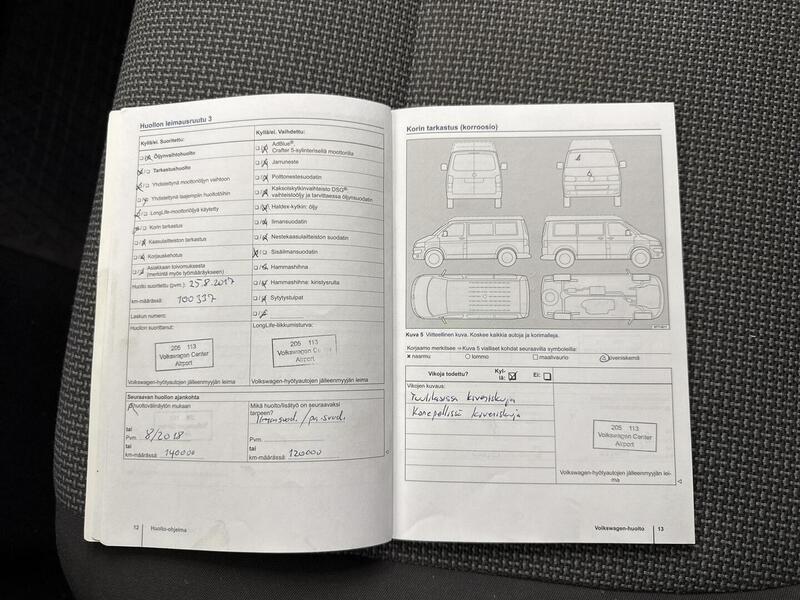 Huollon leimausruutu 3
Kyllä/ei. Suoritettu:
Öljynvaihtohuolto
Tarkastushuolto
Yhdistettynä moottoriöljyn vaihtoon
Yhdistettynä laajempiin huoltotöihin
LongLife-moottoriöljyä käytetty
Korin tarkastus
Kaasulaitteiston tarkastus
Korjauskehotus
Asiakkaan toivomuksesta
(merkintä myös työmääräykseen)
Huolto suoritettu (pvm.): 25.8.2017
km-määrässä: 100337
Laskun numero:
Huollon suorittanut:
205 113
Volkswagen Center
Airport
Volkswagen-hyötyautojen jälleenmyyjän leima
Kyllä/ei. Vaihdettu:
AdBlue®
Crafter 5-sylinterisellä moottorilla
Jarruneste
Polttonestesuodatin
Kaksoiskytkinvaihteisto DSG®:
vaihteistoöljy ja tarvittaessa öljynsuodatin
Haldex-kytkin: öljy
Ilmansuodatin
Nestekaasulaitteiston suodatin
Sisäilmansuodatin
Hammashihna
Hammashihna: kiristysrulla
Sytytystulpat
LongLife-liikkumisturva:
205 113
Volkswagen Center
Airport
Volkswagen-hyötyautojen jälleenmyyjän leima
Seuraavan huollon ajankohta
Huoltovälinäytön mukaan
tai
Pvm. 8/2018
tai
km-määrässä: 140000
Mikä huolto/lisätyö on seuraavaksi
tarpeen?
Ilmansuod. / pa-suod.
Pvm.
tai
km-määrässä: 120000
12 Huolto-ohjelma
Korin tarkastus (korroosio)
Kuva 5 Viitteellinen kuva. Koskee kaikkia autoja ja korimalleja.
Korjaamo merkitsee ⇒ Kuva 5 vialliset kohdat seuraavilla symboleilla:
× naarmu ○ lommo □ maalivaurio △ kiveniskemä
Vikoja todettu?
Kyl-
lä:
Ei:
Vikojen kuvaus:
Tuulilasissa kiveniskuja
Konepellissä kiveniskuja
205 113
Volkswagen Center
Airport
Volkswagen-hyötyautojen jälleenmyyjän lei-
ma
Volkswagen-huolto 13